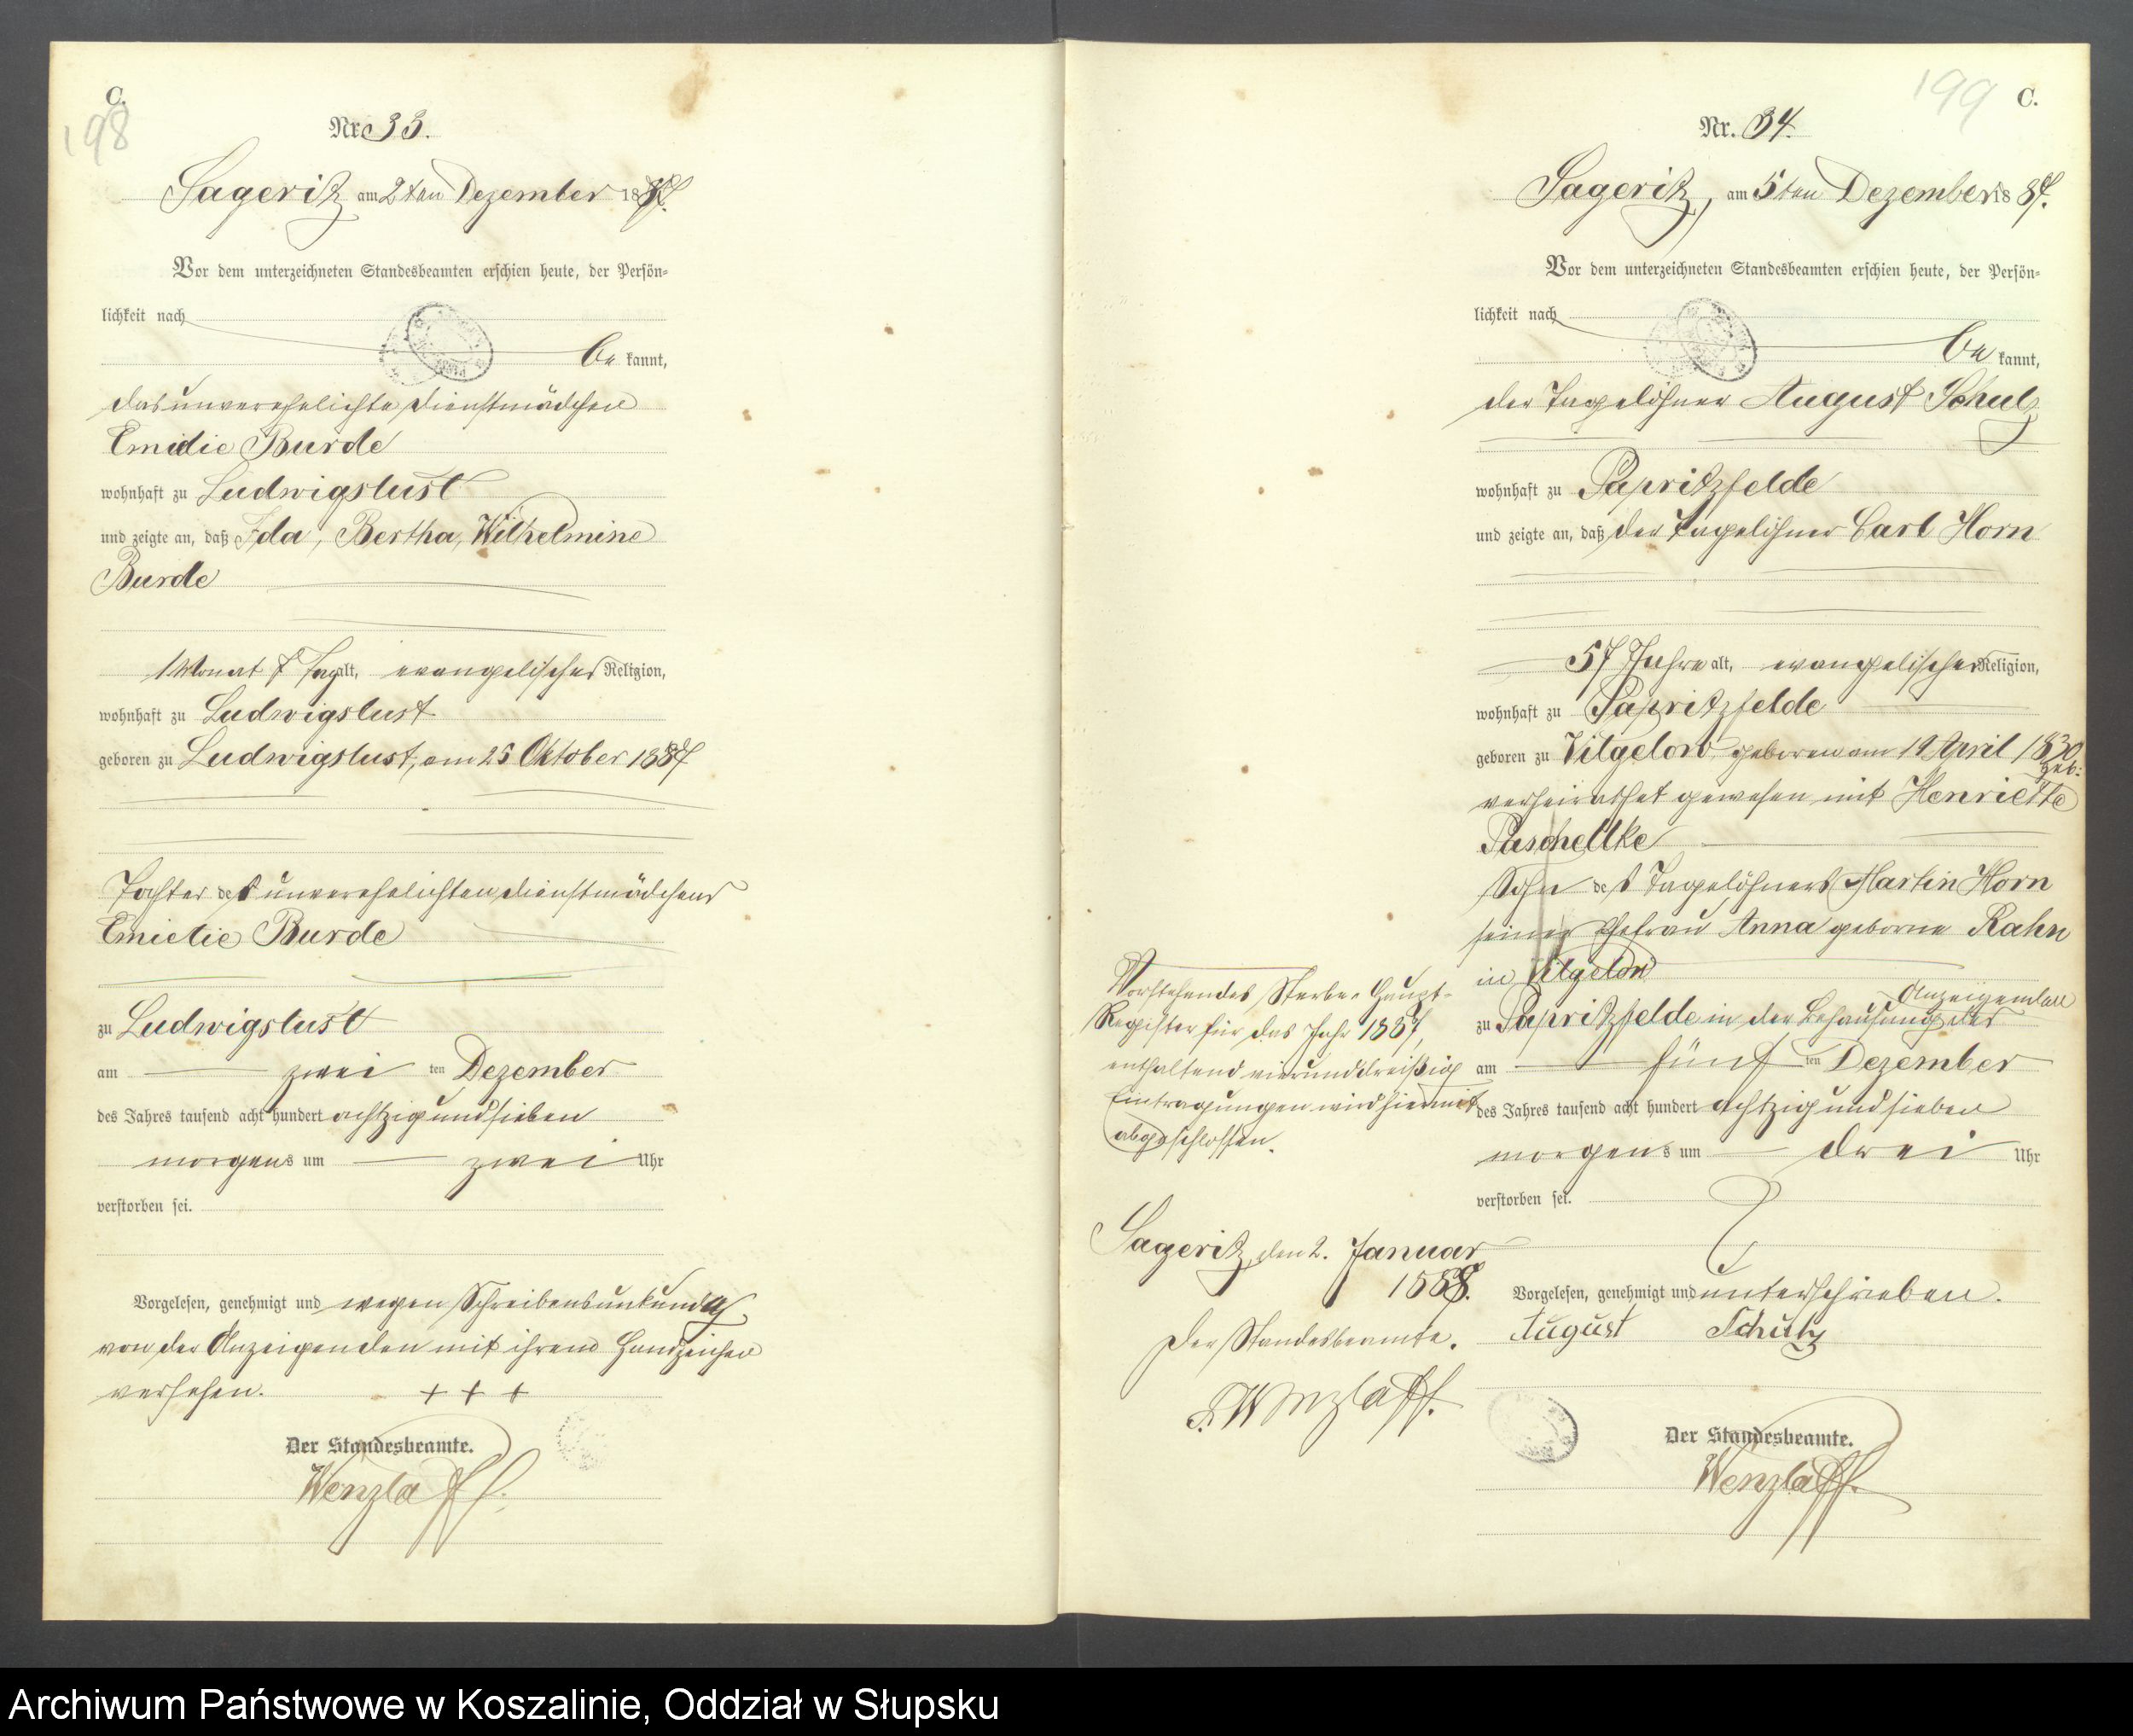 C.
198
Nr. 33.
Sageritz am 2ten Dezember 1887.
Vor dem unterzeichneten Standesbeamten erschien heute, der Persön-
lichkeit nach
be kannt,
das unverehelichte Dienstmädchen
Emilie Burde
wohnhaft zu Ludwigslust
und zeigte an, daß Ida, Bertha, Wilhelmine
Burde
1 Monat 7 Tag alt, evangelischer Religion,
wohnhaft zu Ludwigslust
geboren zu Ludwigslust, am 25 Oktober 1887
Tochter des unverehelichten Dienstmädchens
Emielie Burde
zu Ludwigslust
am zwei ten Dezember
des Jahres tausend acht hundert achtzig und sieben
morgens um zwei Uhr
verstorben sei.
Vorgelesen, genehmigt und wegen Schreibensunkunde
von der Anzeigenden mit ihrem Handzeichen
versehen. + + +
Der Standesbeamte.
Wenzlaff.
199 C.
Nr. 34.
Sageritz, am 5ten Dezember 1887.
Vor dem unterzeichneten Standesbeamten erschien heute, der Persön-
lichkeit nach
be kannt,
der Tagelöhner August Schulz
wohnhaft zu Papritzfelde
und zeigte an, daß der Tagelöhner Carl Horn
57 Jahre alt, evangelischer Religion,
wohnhaft zu Papritzfelde
geboren zu Vilgelow geboren am 19 April 1830
verheirathet gewesen mit Henriette geb:
Paschellke
Sohn des Tagelöhners Martin Horn
seiner Ehefrau Anna geborne Rahn
in Vilgelow
zu Papritzfelde in der Behausung des Anzeigenden
am fünf ten Dezember
des Jahres tausend acht hundert achtzig und sieben
morgens um drei Uhr
verstorben sei.
Vorgelesen, genehmigt und unterschrieben.
August Schulz
Der Standesbeamte.
Wenzlaff.
Vorstehendes Sterbe-Haupt-
Register für das Jahr 1887,
enthaltend vierunddreißig
Eintragungen wird hiermit
abgeschlossen.
Sageritz, den 2. Januar
1888.
Der Standesbeamte.
Wenzlaff.
Archiwum Państwowe w Koszalinie, Oddział w Słupsku